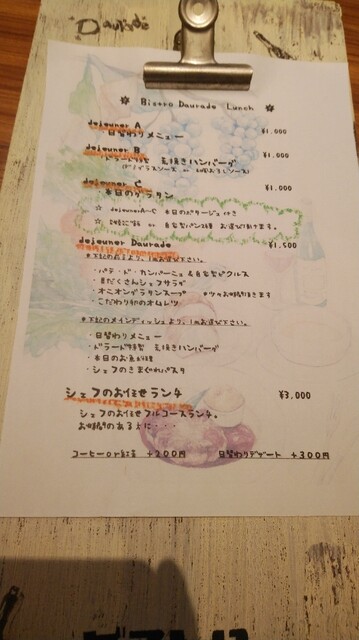 Daurade
❋ Bistro Daurade Lunch ❋
dejeuner A ¥1,000
日替わりメニュー
dejeuner B ¥1,000
ドラード特製 荒挽きハンバーグ
(デミグラスソース or 和風おろしソース)
dejeuner C ¥1,000
本日のグラタン
☆ dejeuner A~C 本日のポタージュ付き
☆ or 自家製パン2種 お選び頂けます。
dejeuner Daurade ¥1,500
*下記の前菜より、1品お選び下さい。
・パテ・ド・カンパーニュ&自家製ピクルス
・具だくさんシェフサラダ
・オニオングラタンスープ *少々お時間頂きます
・こだわり卵のオムレツ
*下記のメインディッシュより、1品お選び下さい。
・日替わりメニュー
・ドラード特製 荒挽きハンバーグ
・本日のお魚料理
・シェフのきまぐれパスタ
シェフのお任せランチ ¥3,000
シェフのお任せフルコースランチ。
お時間のある方に・・・
コーヒーor紅茶 +200円 日替わりデザート +300円